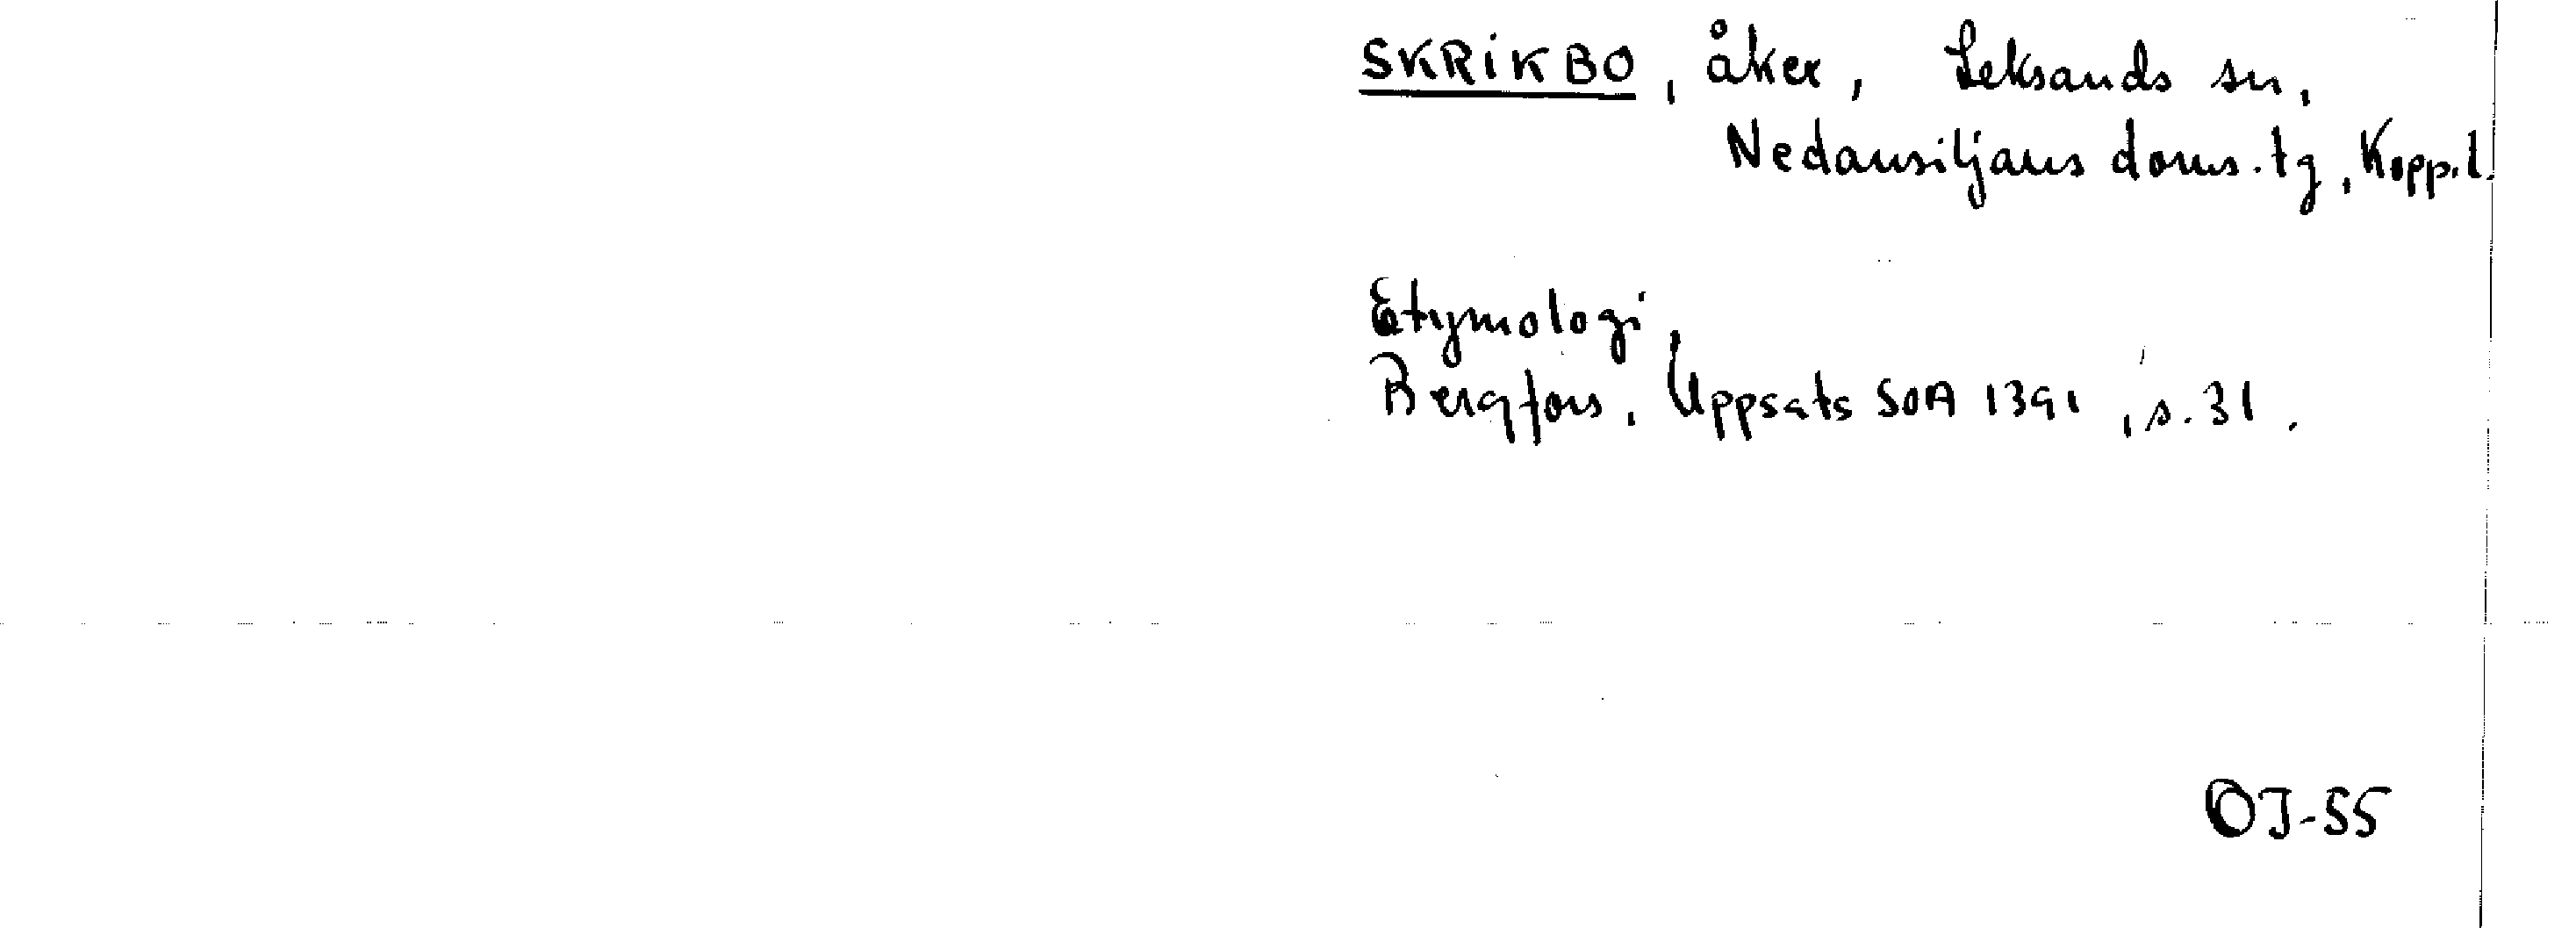 SKRIKBO, åker, Leksands sn,
Nedansiljans doms.tg, Kopp.l.
Etymologi,
Bergfors, Uppsats SOA 1391, s. 31.
OJ-55